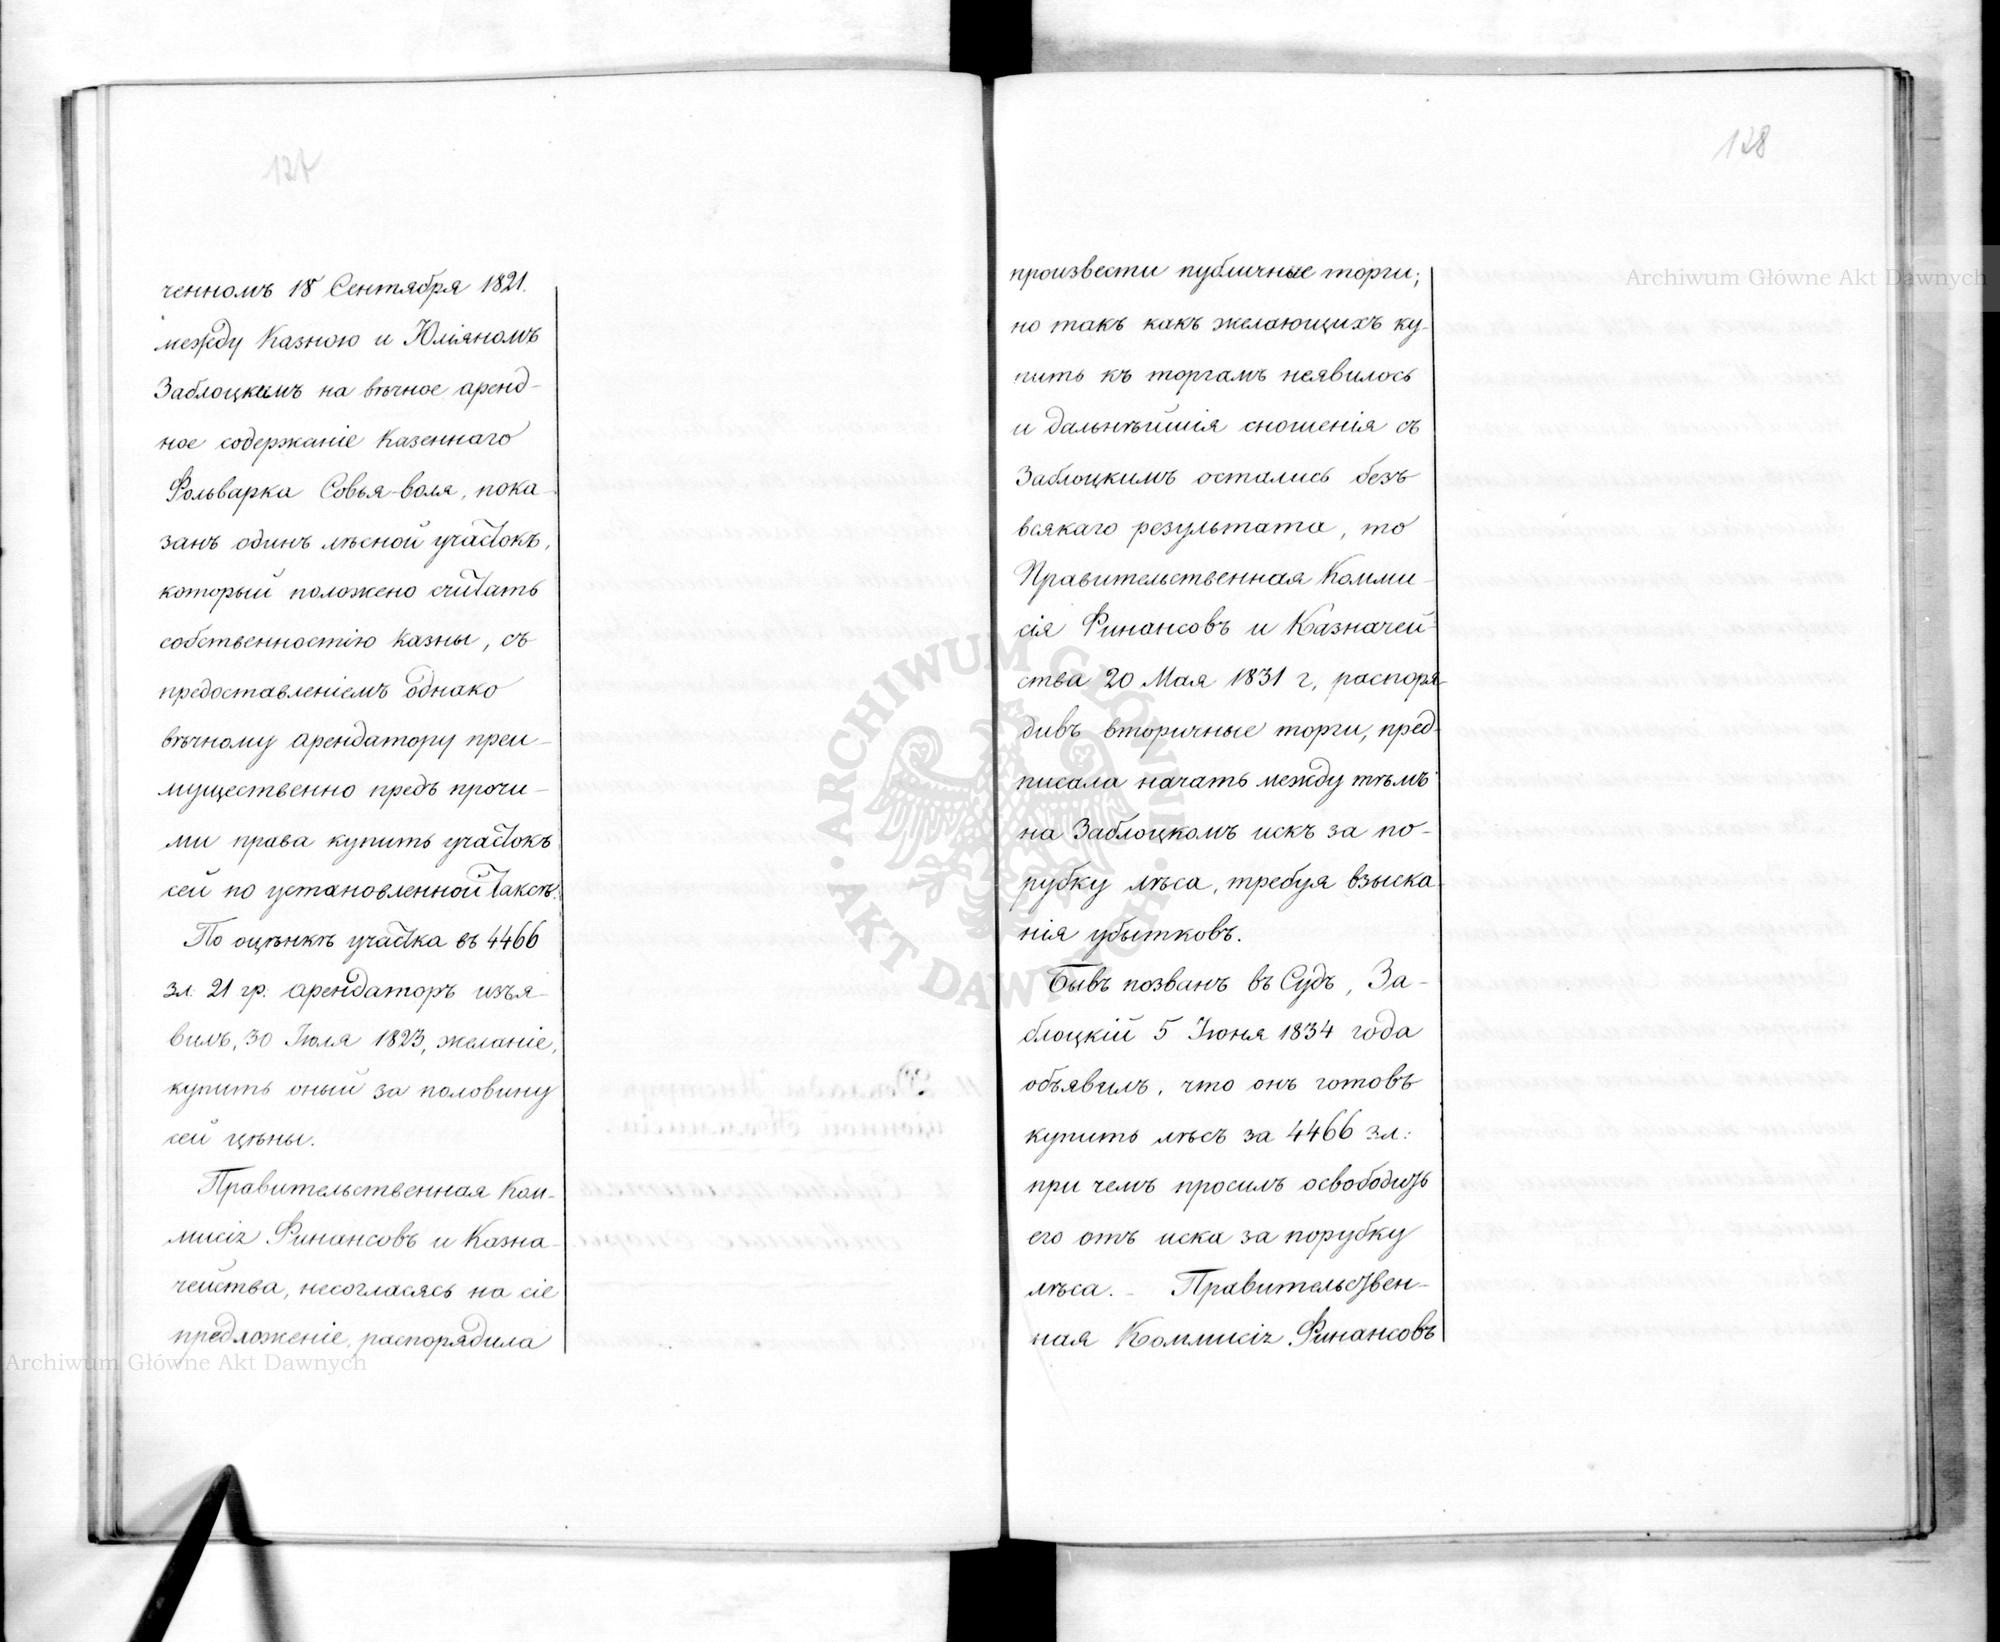 127
ченномъ 18 Сентября 1821.
между Казною и Юліяномъ
Заблоцкимъ на вѣчное аренд-
ное содержаніе Казеннаго
Фольварка Совья-воля, пока-
занъ одинъ лѣсной участокъ,
который положено считать
собственностію казны, съ
предоставленіемъ однако
вѣчному арендатору преи-
мущественно предъ прочи-
ми права купить участокъ
сей по установленной таксѣ.
По оцѣнкѣ участка въ 4466
зл. 21 гр. арендаторъ изъя-
вилъ, 30 Іюля 1823, желаніе,
купить оный за половину
сей цѣны.
Правительственная Ком-
мисія Финансовъ и Казна-
чейства, несогласясь на сіе
предложеніе, распорядила
128
произвести публичные торги;
но такъ какъ желающихъ ку-
пить къ торгамъ неявилось
и дальнѣйшія сношенія съ
Заблоцкимъ остались безъ
всякаго результата, то
Правительственная Комми-
сія Финансовъ и Казначей-
ства 20 Мая 1831 г, распоря-
дивъ вторичные торги, пред-
писала начать между тѣмъ
на Заблоцкомъ искъ за по-
рубку лѣса, требуя взыска-
нія убытковъ.
Бывъ позванъ въ Судъ, За-
блоцкій 5 Іюня 1834 года
объявилъ, что онъ готовъ
купить лѣсъ за 4466 зл:
при чемъ просилъ освободить
его отъ иска за порубку
лѣса. - Правительствен-
ная Коммисія Финансовъ
Archiwum Główne Akt Dawnych
Archiwum Główne Akt Dawnych
ARCHIWUM GŁÓWNE
AKT DAWNYCH